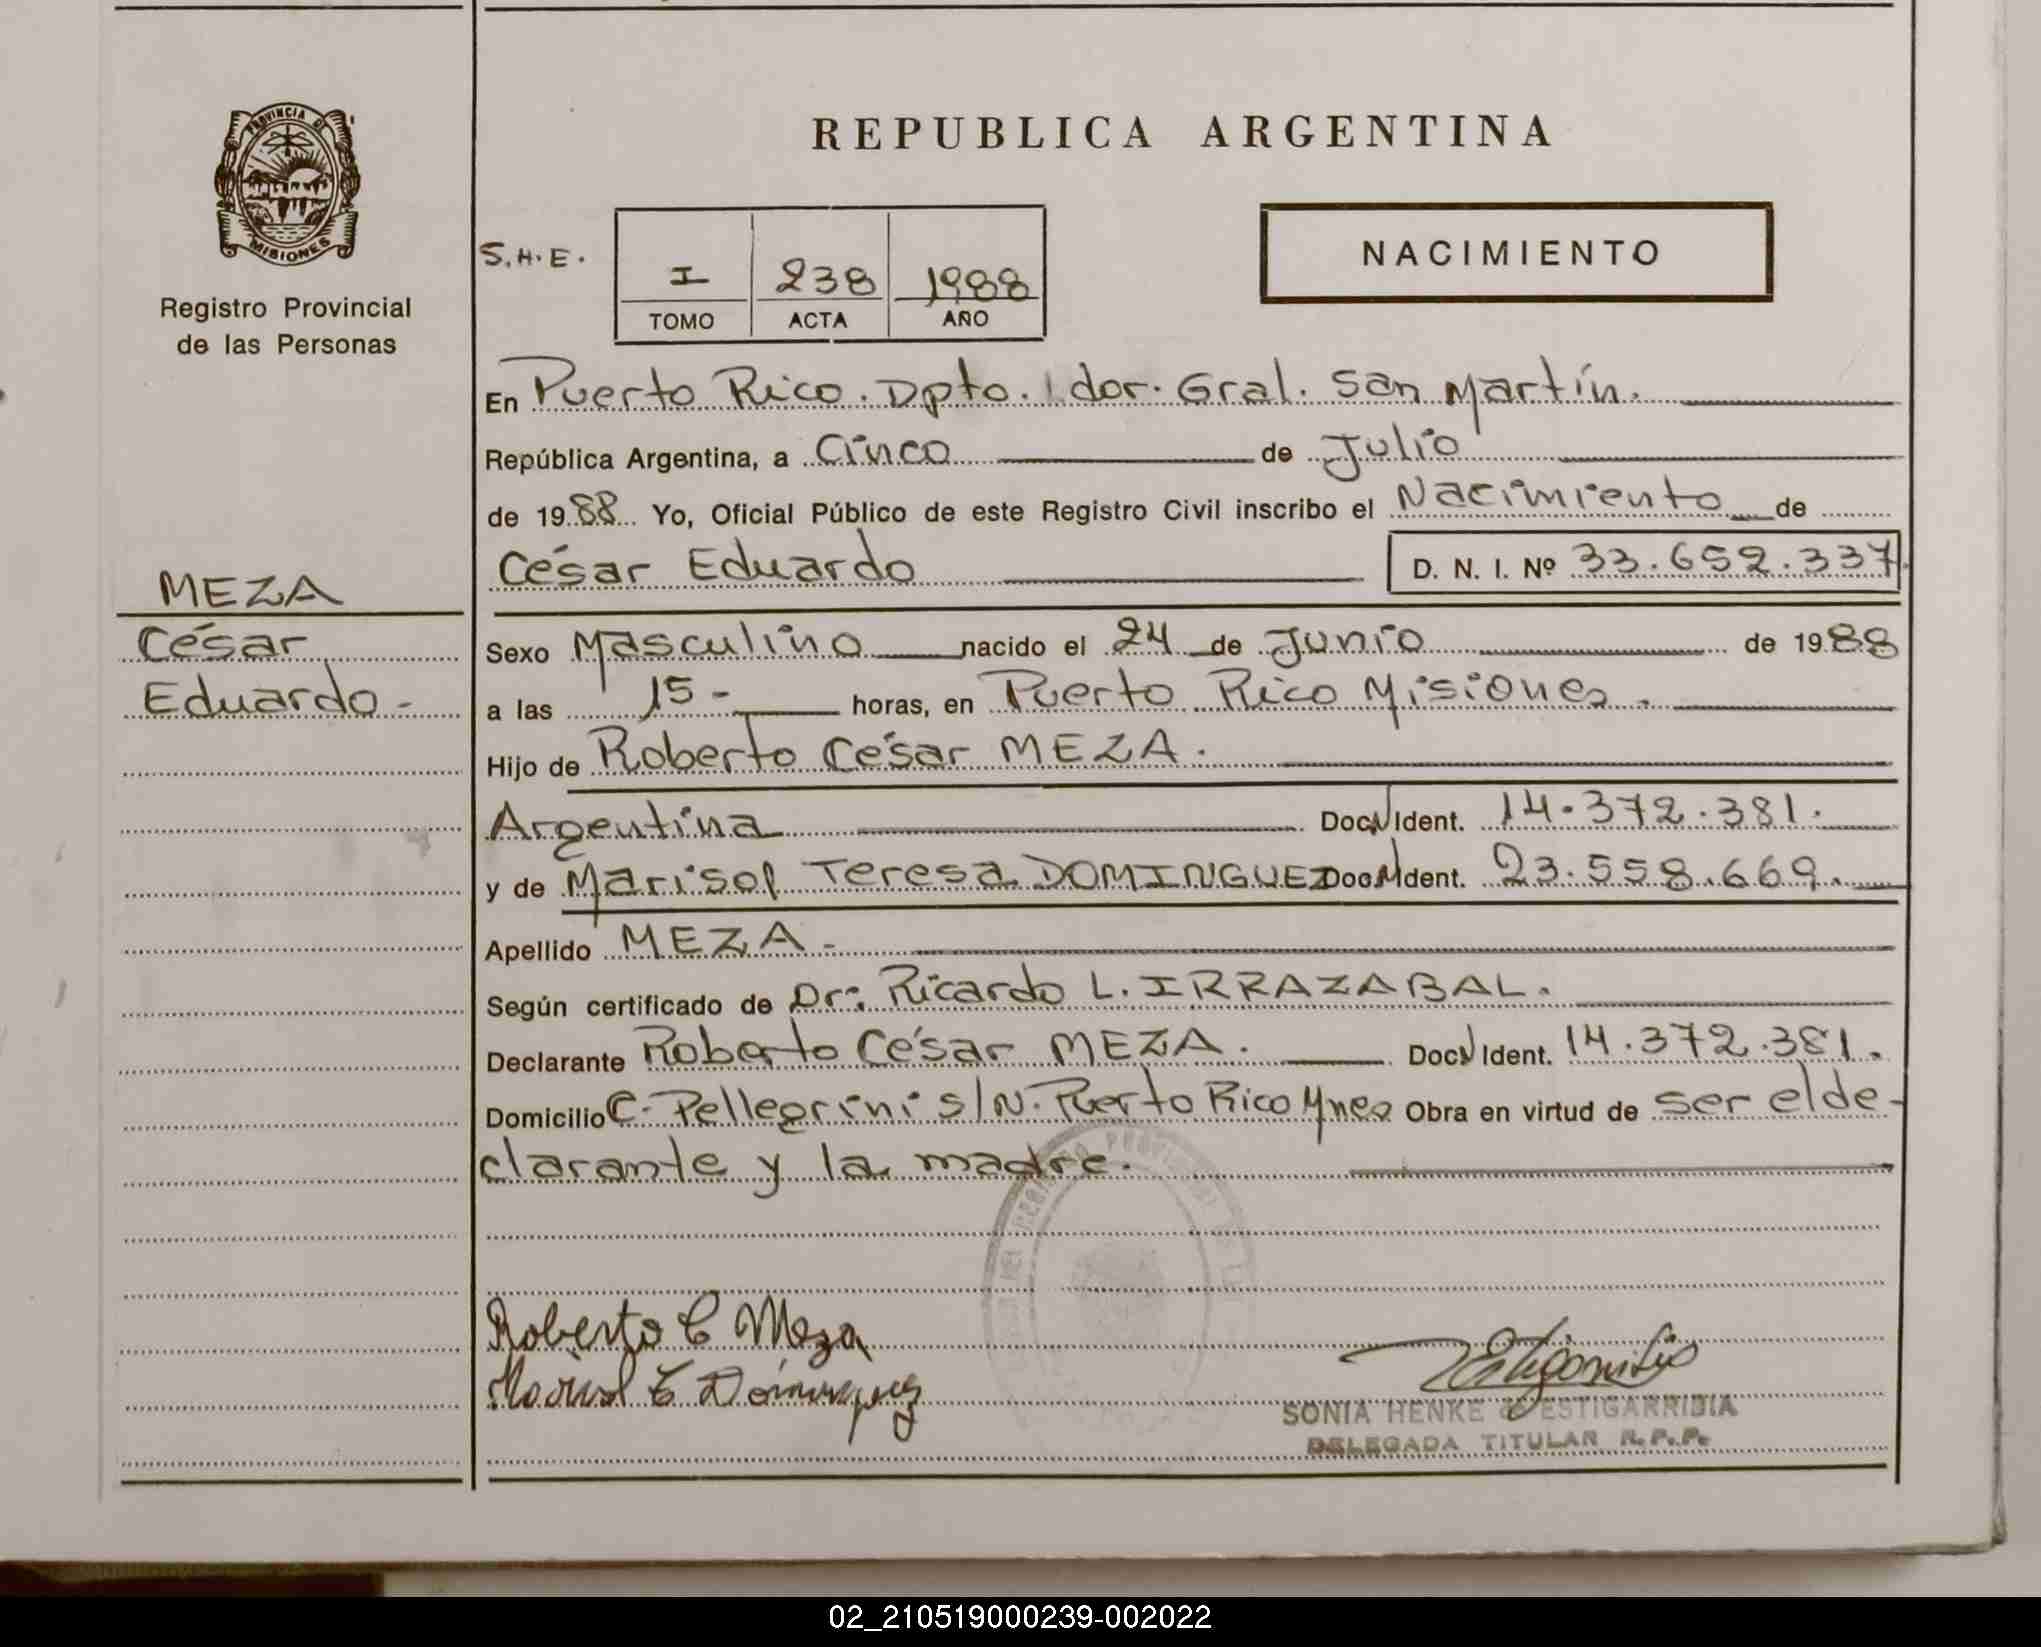 REPUBLICA ARGENTINA
PROVINCIA DE
MISIONES
Registro Provincial
de las Personas
S.H.E.
I 238 1988
TOMO ACTA AÑO
NACIMIENTO
En Puerto Rico. Dpto. Ldor. Gral. San Martín.
República Argentina, a Cinco de Julio
de 1988 Yo, Oficial Público de este Registro Civil inscribo el Nacimiento de
César Eduardo D. N. I. Nº 33.652.337
MEZA
César
Eduardo-
Sexo Masculino nacido el 24 de Junio de 1988
a las 15- horas, en Puerto Rico Misiones.
Hijo de Roberto César MEZA.
Argentina Doc. Ident. 14.372.381.
y de Marisol Teresa DOMINGUEZ Doc. Ident. 23.558.669.
Apellido MEZA-
Según certificado de Dr: Ricardo L. IRRAZABAL.
Declarante Roberto César MEZA. Doc. Ident. 14.372.381.
Domicilio C. Pellegrini s/N. Puerto Rico Mnes Obra en virtud de ser el de-
clarante y la madre.
Roberto C Meza
Marisol T Dominguez
SONIA HENKE de ESTIGARRIBIA
DELEGADA TITULAR R.P.P.
02_210519000239-002022